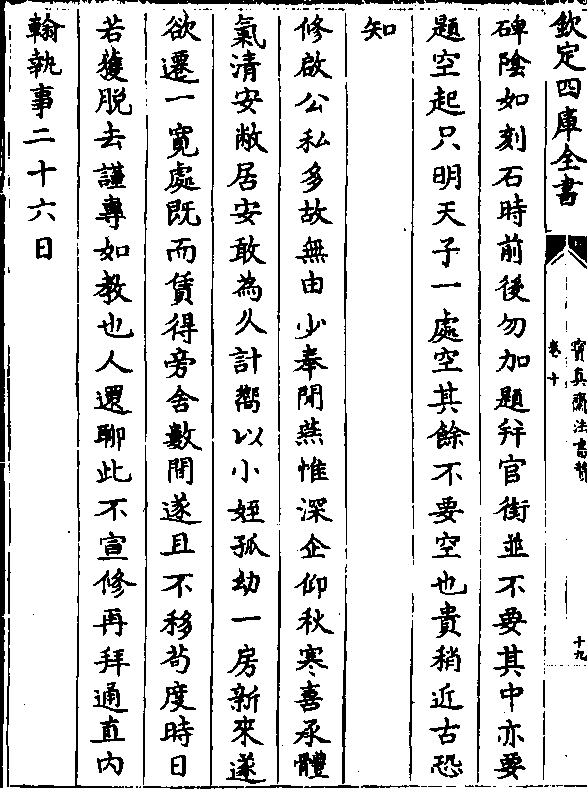 欽定四庫全書
寶真齋法書贊
卷十
十九
碑陰如刻石時前後勿加題幷官銜並不要其中亦要
題空起只明天子一處空其餘不要空也貴稍近古恐
知
修啟公私多故無由少奉閒燕惟深企仰秋寒喜承體
氣清安敝居安敢為久計嚮以小姪孤幼一房新來遂
欲遷一寛處既而賃得旁舍數間遂且不移茍度時日
若獲脫去謹專如教也人還聊此不宣修再拜通直內
翰執事二十六日